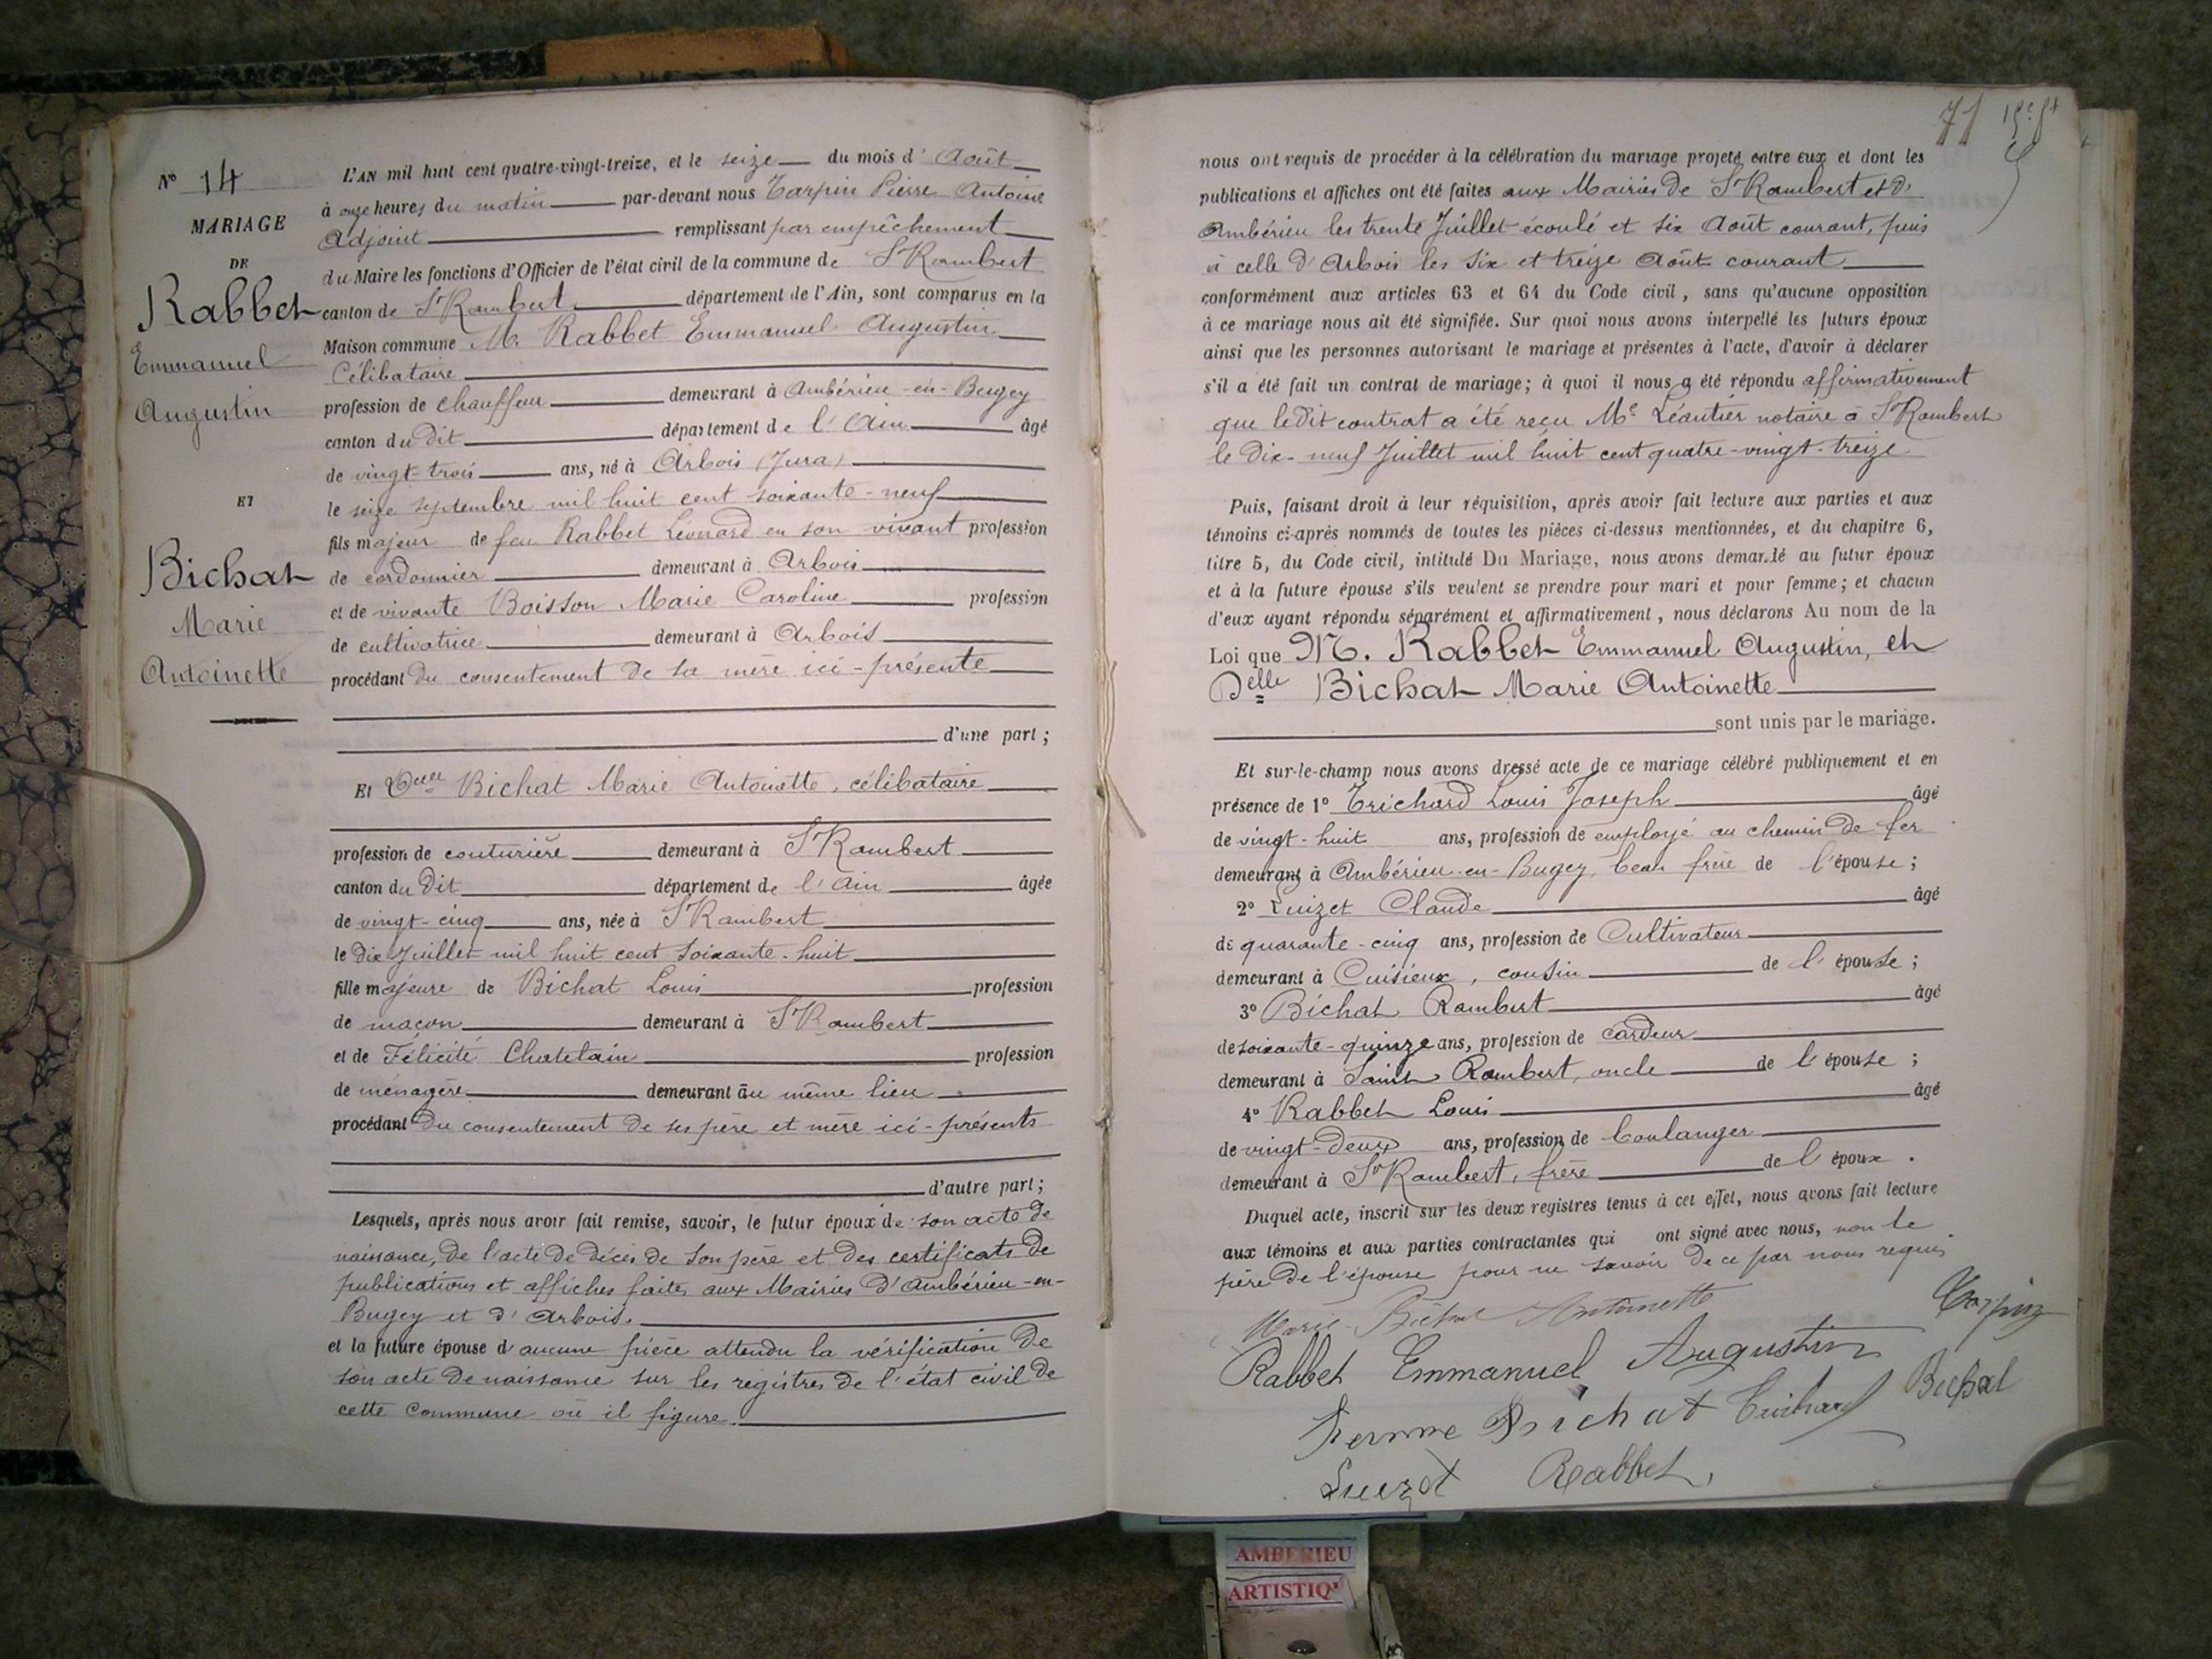 N° 14
MARIAGE
DE
Rabbet
Emmanuel
Augustin
ET
Bichat
Marie
Antoinette
L'AN mil huit cent quatre-vingt-treize, et le seize du mois d' Août
à onze heures du matin par-devant nous Tarpin Pierre Antoine
Adjoint remplissant par empêchement
du Maire les fonctions d'Officier de l'état civil de la commune de St Rambert
canton de St Rambert département de l'Ain, sont comparus en la
Maison commune M. Rabbet Emmanuel Augustin
Célibataire
profession de chauffeur demeurant à Ambérieu-en-Bugey
canton du dit département de l'Ain âgé
de vingt-trois ans, né à Arbois (Jura)
le seize septembre mil huit cent soixante-neuf
fils majeur de feu Rabbet Léonard en son vivant profession
de cordonnier demeurant à Arbois
et de vivante Boisson Marie Caroline profession
de cultivatrice demeurant à Arbois
procédant du consentement de sa mère ici-présente
d'une part;
Et Delle Bichat Marie Antoinette, célibataire
profession de couturière demeurant à St Rambert
canton du dit département de l'Ain âgée
de vingt-cinq ans, née à St Rambert
le dix Juillet mil huit cent soixante-huit
fille majeure de Bichat Louis profession
de maçon demeurant à St Rambert
et de Félicité Chatelain profession
de ménagère demeurant au même lieu
procédant du consentement de ses père et mère ici-présents
d'autre part;
Lesquels, après nous avoir fait remise, savoir, le futur époux de son acte de
naissance, de l'acte de décès de son père et des certificats de
publications et affiches faites aux Mairies d'Ambérieu-en-
Bugey et d'Arbois.
et la future épouse d'aucune pièce attendu la vérification de
son acte de naissance sur les registres de l'état civil de
cette commune où il figure.
71
nous ont requis de procéder à la célébration du mariage projeté entre eux et dont les
publications et affiches ont été faites aux Mairies de St Rambert et d'
Ambérieu les trente Juillet écoulé et six Août courant, puis
à celle d'Arbois les six et treize Août courant
conformément aux articles 63 et 64 du Code civil, sans qu'aucune opposition
à ce mariage nous ait été signifiée. Sur quoi nous avons interpellé les futurs époux
ainsi que les personnes autorisant le mariage et présentes à l'acte, d'avoir à déclarer
s'il a été fait un contrat de mariage; à quoi il nous a été répondu affirmativement
que le dit contrat a été reçu Me Léautier notaire à St Rambert
le dix-neuf Juillet mil huit cent quatre-vingt-treize
Puis, faisant droit à leur réquisition, après avoir fait lecture aux parties et aux
témoins ci-après nommés de toutes les pièces ci-dessus mentionnées, et du chapitre 6,
titre 5, du Code civil, intitulé Du Mariage, nous avons demandé au futur époux
et à la future épouse s'ils veulent se prendre pour mari et pour femme; et chacun
d'eux ayant répondu séparément et affirmativement, nous déclarons Au nom de la
Loi que M. Rabbet Emmanuel Augustin, et
Delle Bichat Marie Antoinette
sont unis par le mariage.
Et sur-le-champ nous avons dressé acte de ce mariage célébré publiquement et en
présence de 1° Trichard Louis Joseph âgé
de vingt-huit ans, profession de employé au chemin de fer
demeurant à Ambérieu-en-Bugey, beau frère de l'épouse;
2° Luizet Claude âgé
de quarante-cinq ans, profession de Cultivateur
demeurant à Cuisieux, cousin de l'épouse;
3° Bichat Rambert âgé
de soixante-quinze ans, profession de cardeur
demeurant à Saint Rambert, oncle de l'épouse;
4° Rabbet Louis âgé
de vingt-deux ans, profession de boulanger
demeurant à St Rambert, frère de l'époux.
Duquel acte, inscrit sur les deux registres tenus à cet effet, nous avons fait lecture
aux témoins et aux parties contractantes qui ont signé avec nous, non le
père de l'épouse pour ne savoir de ce par nous requis
Marie Bichat Antoinette Tarpin
Rabbet Emmanuel Augustin
femme Bichat Trichard Bichat
Luizet Rabbet
AMBERIEU
ARTISTIQ